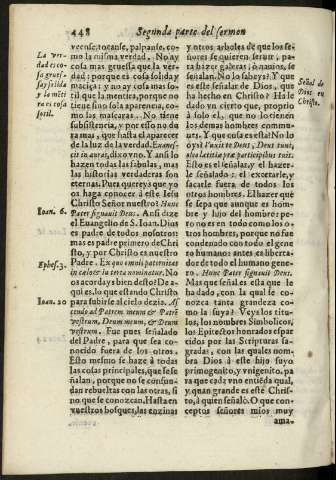 448 Segunda parte del sermon
La ver-
dad es co-
sa grues-
sa y solida
y la mẽti
ra es cosa
sotil.
Ioan. 6.
Ephes. 3.
Ioan. 20
veense, tocanse, palpanse, co-
mo la misma verdad. No ay
cosa mas gruessa que la ver-
dad: porque es cosa solida y
maciça; y no ay cosa mas so-
til que la mentira, porque no
tiene sino sola aparencia, co-
mo las mascaras. No tiene
subsistencia, y por esso no du-
ra mas, que hasta el aparecer
de la luz de la verdad. Evanes-
cit in auras, dixo vno. Y ansi lo
hazen todas las fabulas, mas
las historias verdaderas son
eternas. Pues quereys que yo
os haga conocer à este Iesu
Christo Señor nuestro? Hunc
Pater signauit Deus. Ansi dize
el Euangelio de S. Ioan. Dios
es padre de todos nosotros:
mas es padre primero de Chri
sto, y por Christo es nuestro
Padre. Ex quo omnis paternitas
in cælo & in terra nominatur. No
os acordays bien desto? De a-
qui es, lo que estando Christo
para subirse al cielo dezia. As
cendo ad Patrem meum & Patrẽ
vestrum, Deum meum, & Deum
vestrum. Fue pues señalado
del Padre, para que sea co-
nocido fuera de los otros.
Esto mesmo se haze à todas
las cosas principales, que se se
ñalan, porque no se confun-
dan rebueltas con las otras, si
no que se conozcan. Hasta en
vuestros bosques, las enzinas
y otros arboles de que los se-
ñores se quieren seruir, pa-
ra hazer galeras; ò nauios, se
señalan. No lo sabeys? Y que
es este señalar de Dios, que
ha hecho en Christo? Hale
dado vn cierto que, proprio
à solo el, que no le tienen los
otros, que le haze ser sobre to
dos, y no comun cosa cõ mu-
chos. Y que cosa es esta? No lo
oys? Vnxit te Deus, Deus tuus,
oleo lætitiæ præ participibus tuis.
Esto es el señalar, y el hazer-
le señalado: el exortarle, y
sacarle fuera de todos los
otros hombres. El hazer que
se sepa que aunque es hom-
bre y hijo del hombre: pe-
ro no es en todo como los o-
tros hombres, porque nõ fue
condenado con todo el gene
ro humano: antes es liberta-
dor de todo el humano gene
ro. Hunc Pater signauit Deus.
Mas que señal es esta que le
ha dado, con la qual se co-
nozca tanta grandeza co-
mo la suya? Veys los titu-
los, los nombres Simbolicos,
los Epitectos honrados espar
zidos por las Scripturas sa-
gradas, con las quales nom-
bra Dios à este hijo suyo
primogenito, y vnigenito. pa
ra que cada vno entiẽda qual,
y quan grande es este Chris-
to, à quien señalò. O que con-
ceptos señores mios muy
ama-
Señal de
Dios en
Christo.